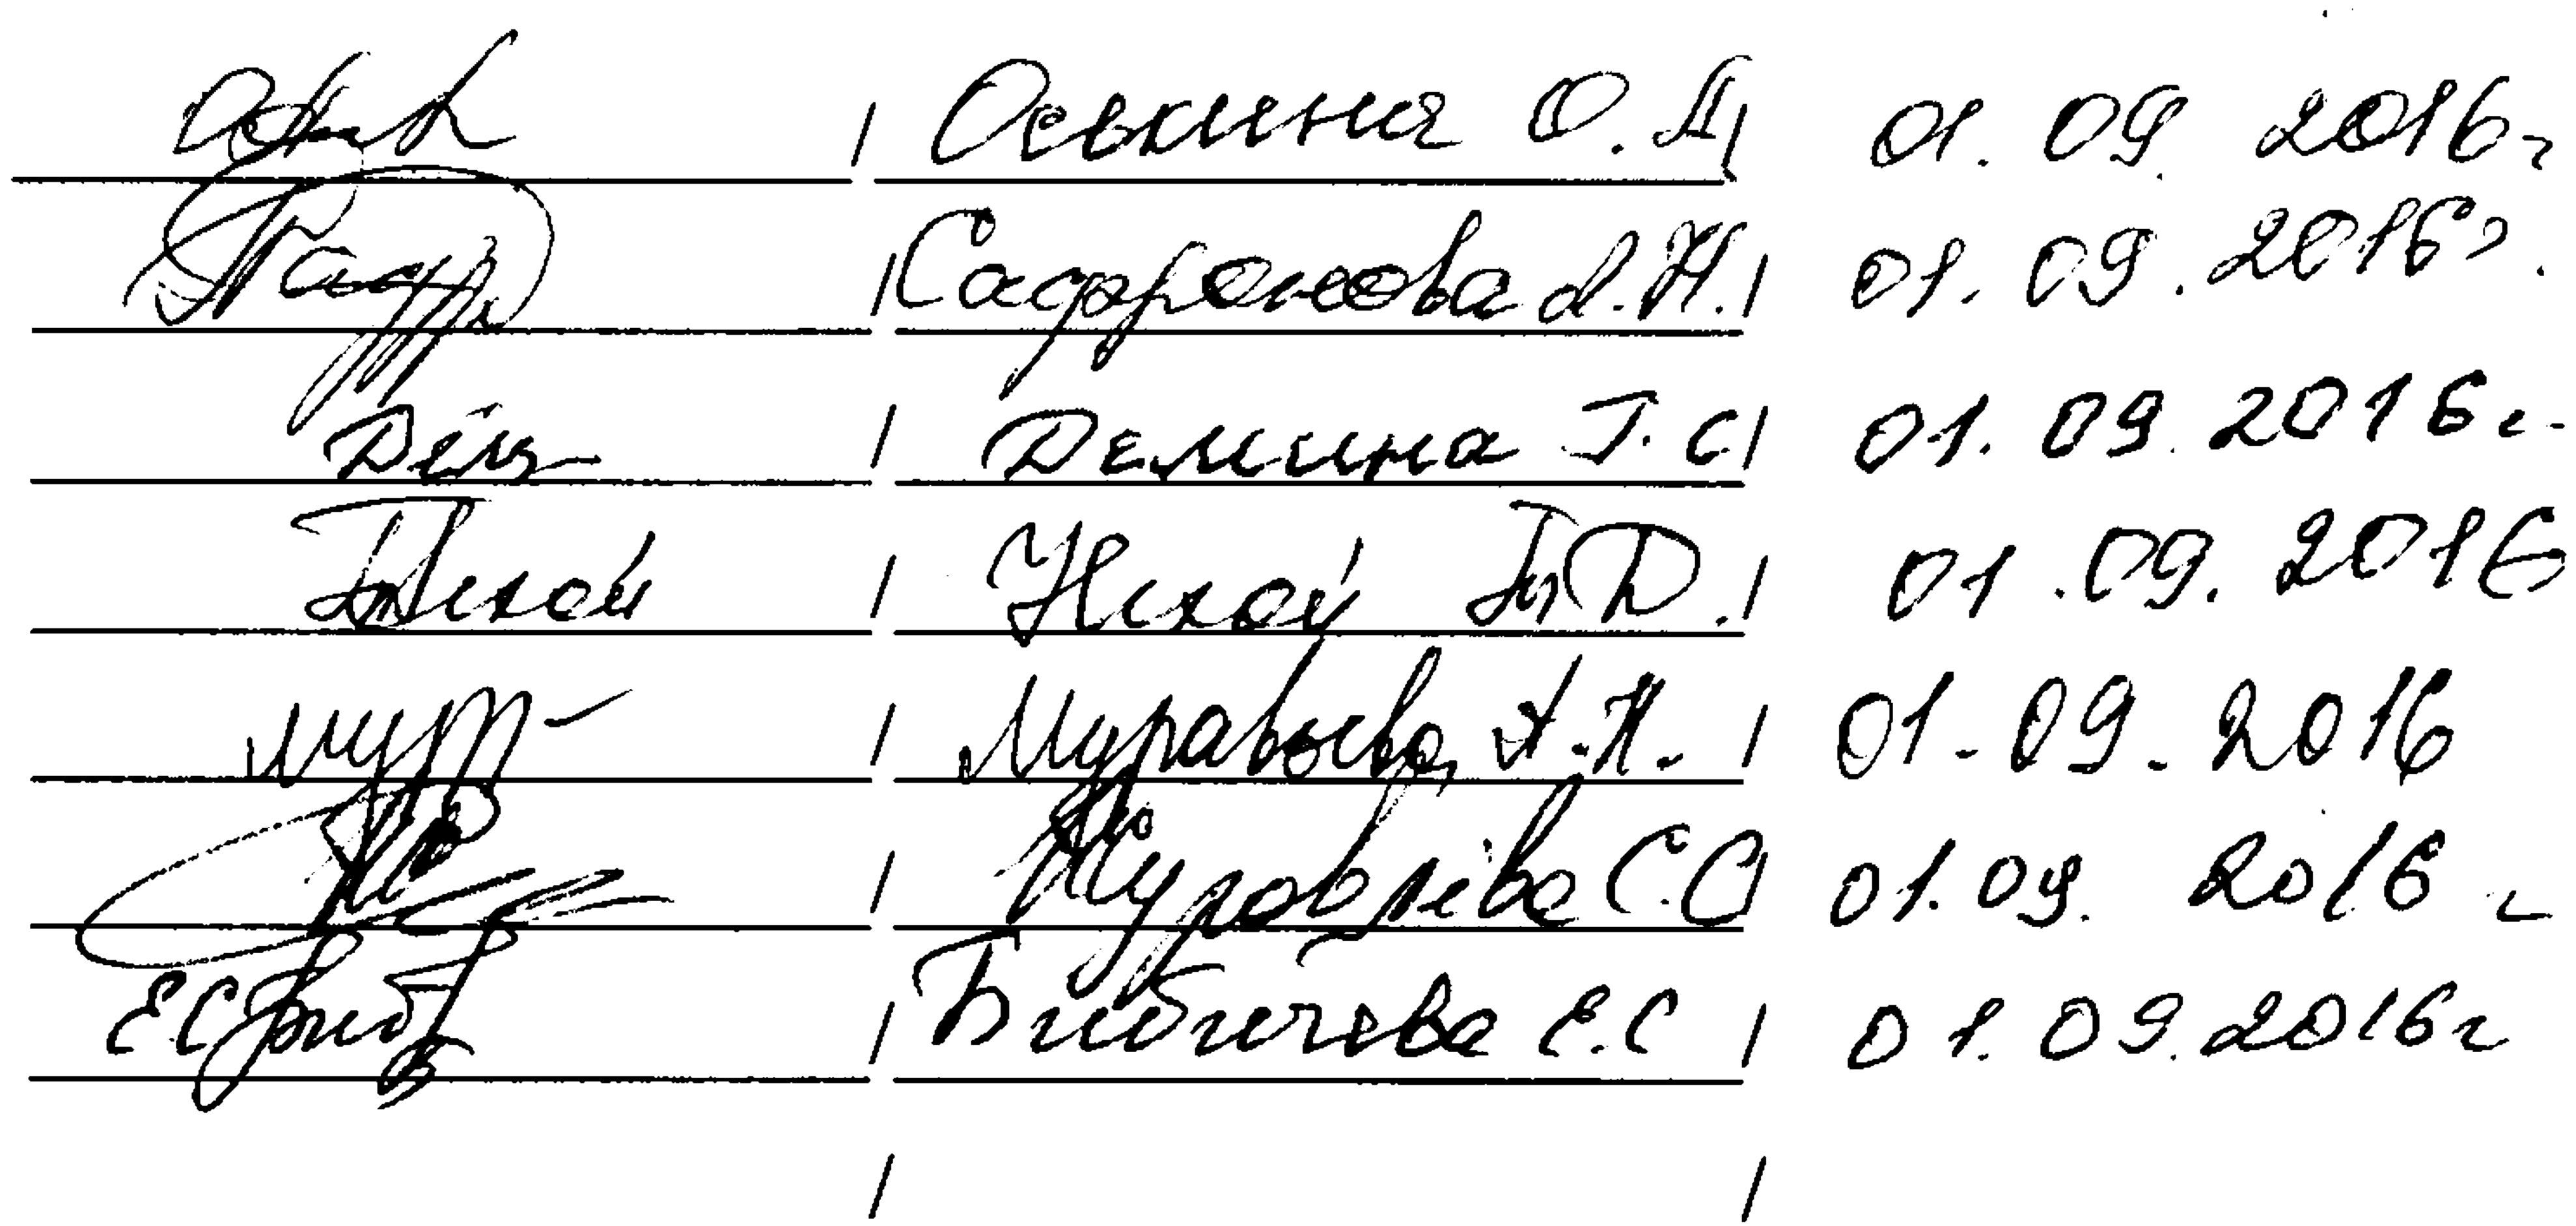 / Оськина О. Д/ 01. 09. 2016г
/ Сафронова Л.Н. / 01. 09. 2016г.
Дем / Демина Т. С/ 01. 09. 2016г.
/ Д. / 01.09. 2016
Мур / Муравьева А.Н. / 01. 09. 2016
/ Журавлёва С.С / 01.09. 2016 г
Е.С / Бибичева Е.С / 01. 09. 2016г
/ /